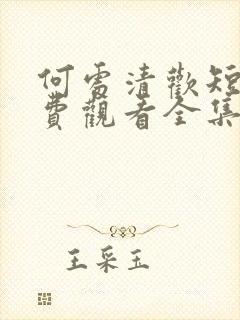 何處清歡短
費觀看全集
王采玉